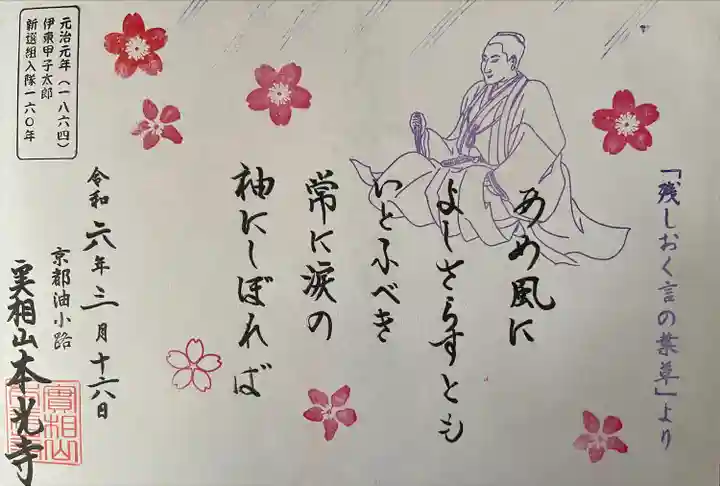 「残しおく言の葉草」より
あめ風に
よしさらすとも
いとふべき
常に涙の
袖にしぼれば
元治元年（一八六四）
伊東甲子太郎
新選組入隊一六〇年
令和六年三月十六日
京都油小路
実相山本光寺
實相山